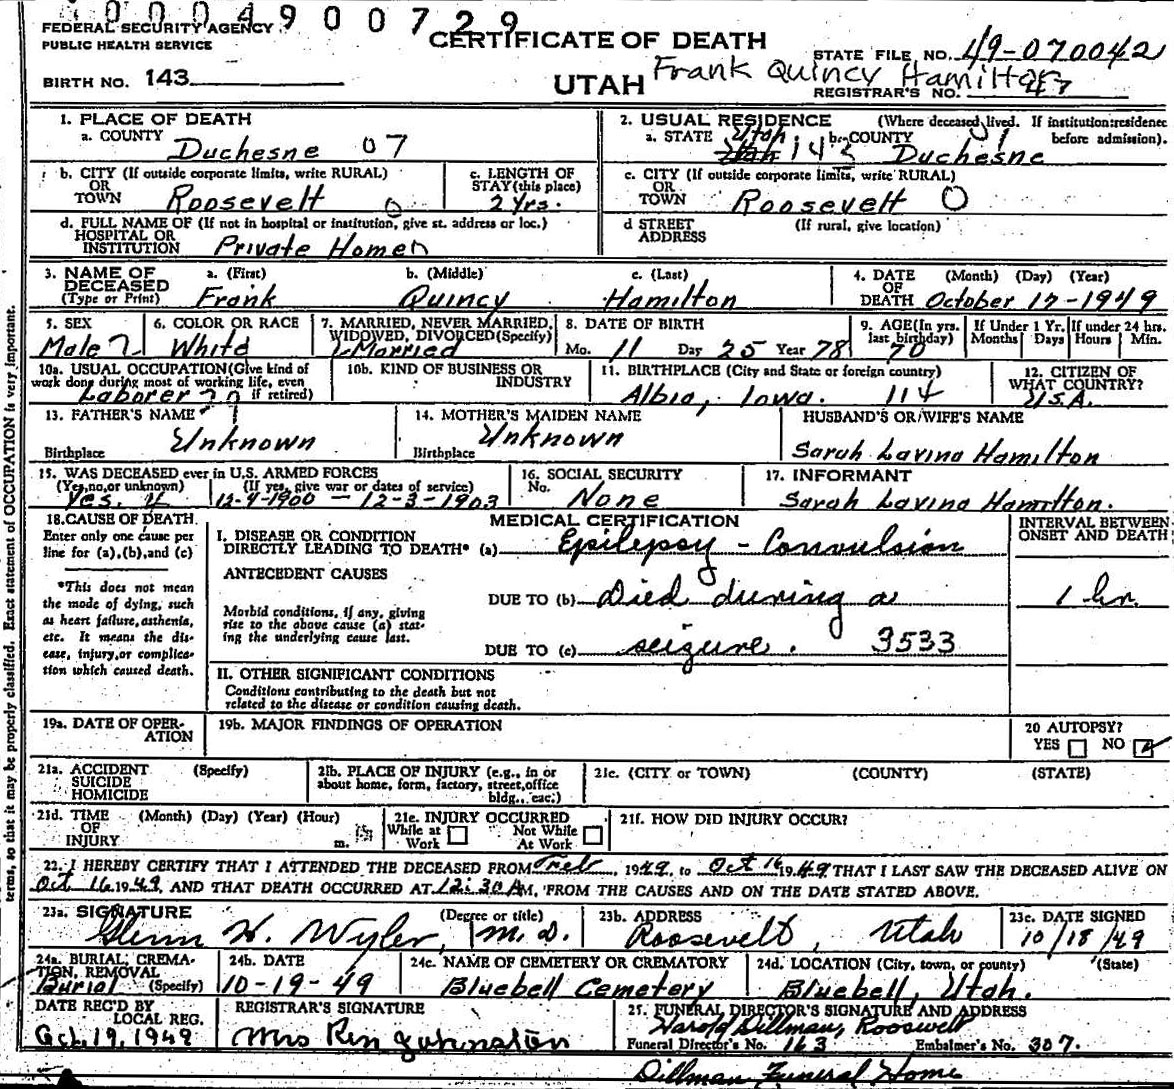 0004900729
FEDERAL SECURITY AGENCY
PUBLIC HEALTH SERVICE
CERTIFICATE OF DEATH
STATE FILE NO. 49-070042
BIRTH NO. 143
UTAH
Frank Quincy Hamilton
REGISTRAR'S NO. 47
1. PLACE OF DEATH
a. COUNTY
Duchesne 07
2. USUAL RESIDENCE (Where deceased lived. If institution: residence before admission).
a. STATE Utah 143 b. COUNTY Duchesne
b. CITY (If outside corporate limits, write RURAL)
OR
TOWN Roosevelt 0
c. LENGTH OF
STAY (this place)
2 Yrs.
c. CITY (If outside corporate limits, write RURAL)
OR
TOWN Roosevelt 0
d. FULL NAME OF (If not in hospital or institution, give st. address or loc.)
HOSPITAL OR
INSTITUTION Private Home
d STREET (If rural, give location)
ADDRESS
3. NAME OF a. (First) b. (Middle) c. (Last)
DECEASED
(Type or Print) Frank Quincy Hamilton
4. DATE (Month) (Day) (Year)
OF
DEATH October 17-1949
5. SEX
Male
6. COLOR OR RACE
White
7. MARRIED, NEVER MARRIED,
WIDOWED, DIVORCED (Specify)
Married
8. DATE OF BIRTH
Mo. 11 Day 25 Year 78
9. AGE (In yrs.
last birthday)
70
If Under 1 Yr.
Months Days
If under 24 hrs.
Hours Min.
10a. USUAL OCCUPATION (Give kind of
work done during most of working life, even
if retired)
Laborer
10b. KIND OF BUSINESS OR
INDUSTRY
11. BIRTHPLACE (City and State or foreign country)
Albia, Iowa. 114
12. CITIZEN OF
WHAT COUNTRY?
U.S.A.
13. FATHER'S NAME
Unknown
Birthplace
14. MOTHER'S MAIDEN NAME
Unknown
Birthplace
HUSBAND'S OR/WIFE'S NAME
Sarah Lavina Hamilton
15. WAS DECEASED ever in U.S. ARMED FORCES
(Yes, no, or unknown) (If yes, give war or dates of service)
Yes. 12-4-1900 — 12-3-1903
16. SOCIAL SECURITY
No. None
17. INFORMANT
Sarah Lavina Hamilton.
18. CAUSE OF DEATH
Enter only one cause per
line for (a), (b), and (c)
*This does not mean
the mode of dying, such
as heart failure, asthenia,
etc. It means the dis-
ease, injury, or complica-
tion which caused death.
MEDICAL CERTIFICATION
I. DISEASE OR CONDITION
DIRECTLY LEADING TO DEATH* (a) Epilepsy - Convulsion
ANTECEDENT CAUSES
Morbid conditions, if any, giving
rise to the above cause (a) stat-
ing the underlying cause last.
DUE TO (b) Died during a
DUE TO (c) seizure. 3533
INTERVAL BETWEEN
ONSET AND DEATH
1 hr.
II. OTHER SIGNIFICANT CONDITIONS
Conditions contributing to the death but not
related to the disease or condition causing death.
19a. DATE OF OPER-
ATION
19b. MAJOR FINDINGS OF OPERATION
20 AUTOPSY?
YES NO
21a. ACCIDENT (Specify)
SUICIDE
HOMICIDE
21b. PLACE OF INJURY (e.g., in or
about home, form, factory, street, office
bldg., eac.)
21c. (CITY or TOWN) (COUNTY) (STATE)
21d. TIME (Month) (Day) (Year) (Hour)
OF
INJURY m.
21e. INJURY OCCURRED
While at Work Not While At Work
21f. HOW DID INJURY OCCUR?
22. I HEREBY CERTIFY THAT I ATTENDED THE DECEASED FROM Feb 1949, to Oct 16 1949 THAT I LAST SAW THE DECEASED ALIVE ON
Oct 16 1949, AND THAT DEATH OCCURRED AT 12:30 AM, FROM THE CAUSES AND ON THE DATE STATED ABOVE.
23a. SIGNATURE (Degree or title)
Glenn W. Wyler, M.D.
23b. ADDRESS
Roosevelt, Utah
23c. DATE SIGNED
10/18/49
24a. BURIAL, CREMA-
TION, REMOVAL
Burial (Specify)
24b. DATE
10-19-49
24c. NAME OF CEMETERY OR CREMATORY
Bluebell Cemetery
24d. LOCATION (City, town, or county) (State)
Bluebell, Utah.
DATE REC'D BY
LOCAL REG.
Oct. 19, 1949
REGISTRAR'S SIGNATURE
Mrs Ren Johnston
25. FUNERAL DIRECTOR'S SIGNATURE AND ADDRESS
Harold Dillman, Roosevelt
Funeral Director's No. 163 Embalmer's No. 307.
Dillman Funeral Home
terms, so that it may be properly classified. Exact statement of OCCUPATION is very important.